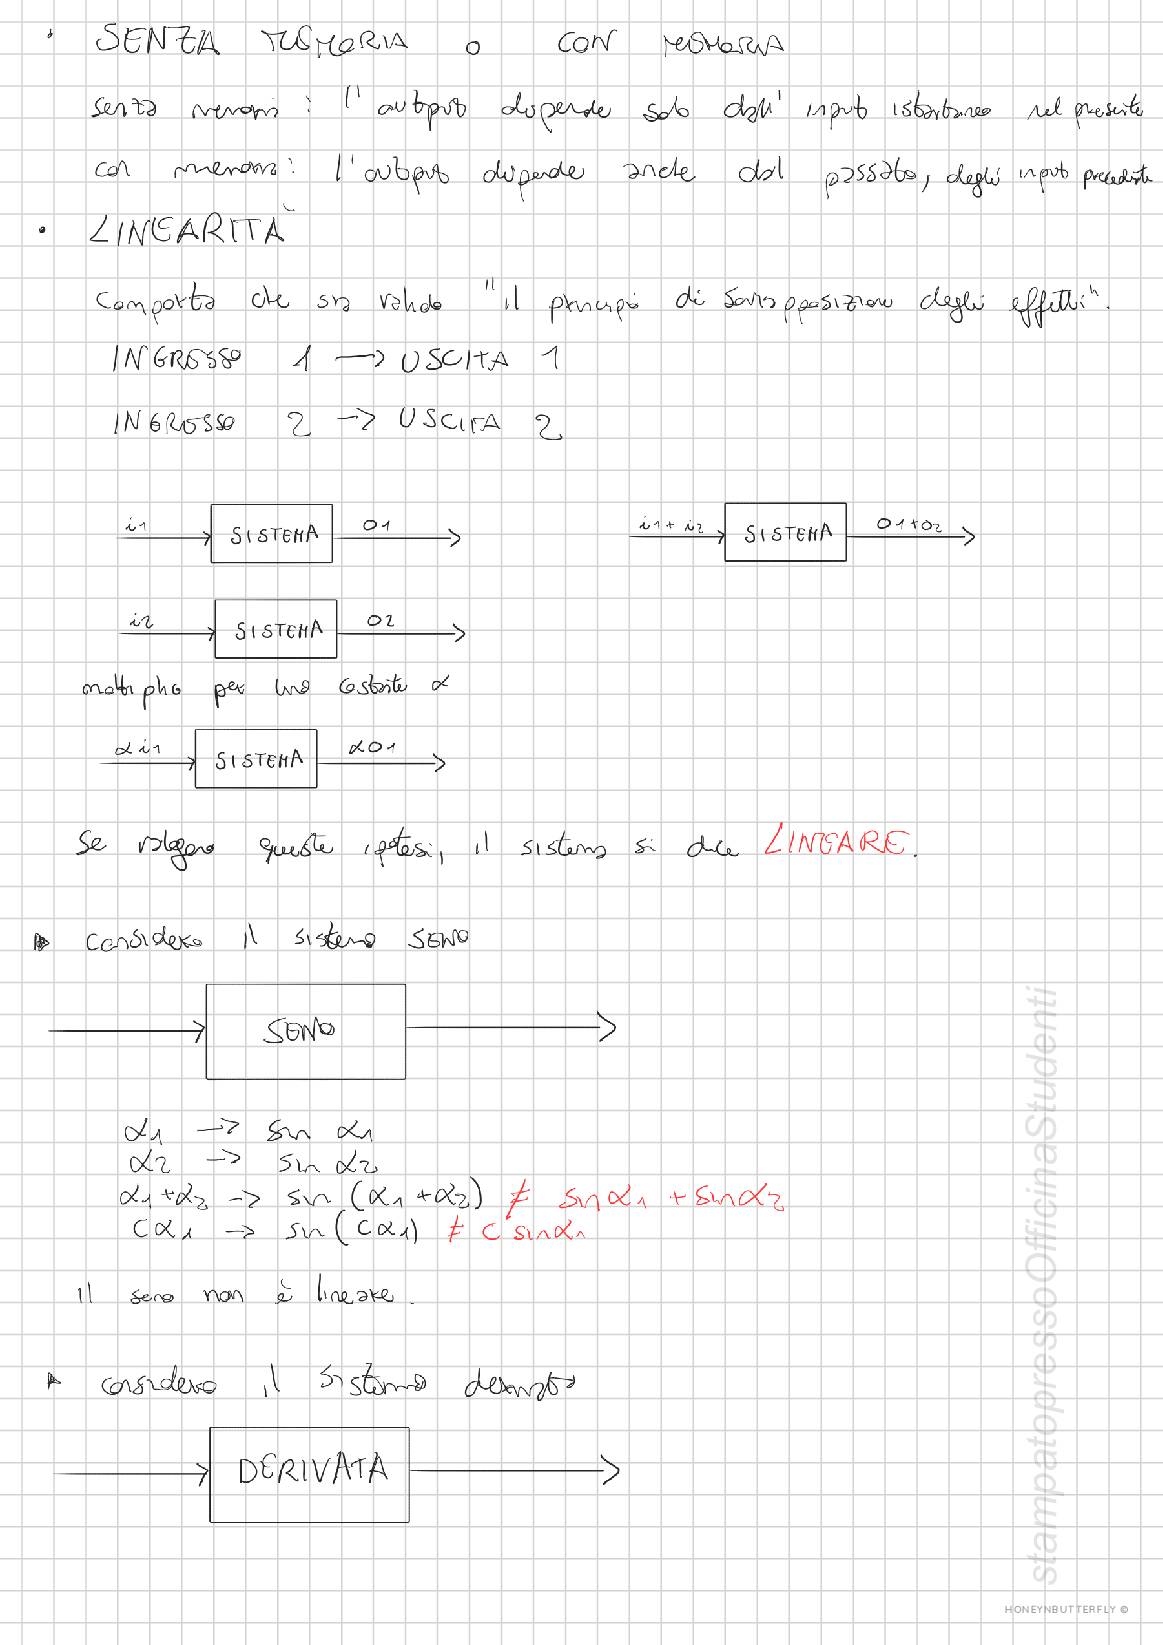 · SENZA MEMORIA o CON MEMORIA
senza memoria: l'output dipende solo dall'input istantaneo nel presente
con memoria: l'output dipende anche dal passato, degli input precedenti
· LINEARITÀ
Comporta che sia valido "il principio di sovrapposizione degli effetti".
INGRESSO 1 → USCITA 1
INGRESSO 2 → USCITA 2
i1 SISTEMA O1 i1+i2 SISTEMA O1+O2
i2 SISTEMA O2
moltiplico per una costante α
αi1 SISTEMA αO1
Se valgono queste ipotesi, il sistema si dice LINEARE.
▸ considero il sistema SENO
SENO
α1 → sin α1
α2 → sin α2
α1+α2 → sin (α1+α2) ≠ sinα1 + sinα2
Cα1 → sin(Cα1) ≠ C sinα1
Il seno non è lineare.
▸ considero il sistema derivata
DERIVATA
stampatopressoOfficinaStudenti
HONEYNBUTTERFLY ©